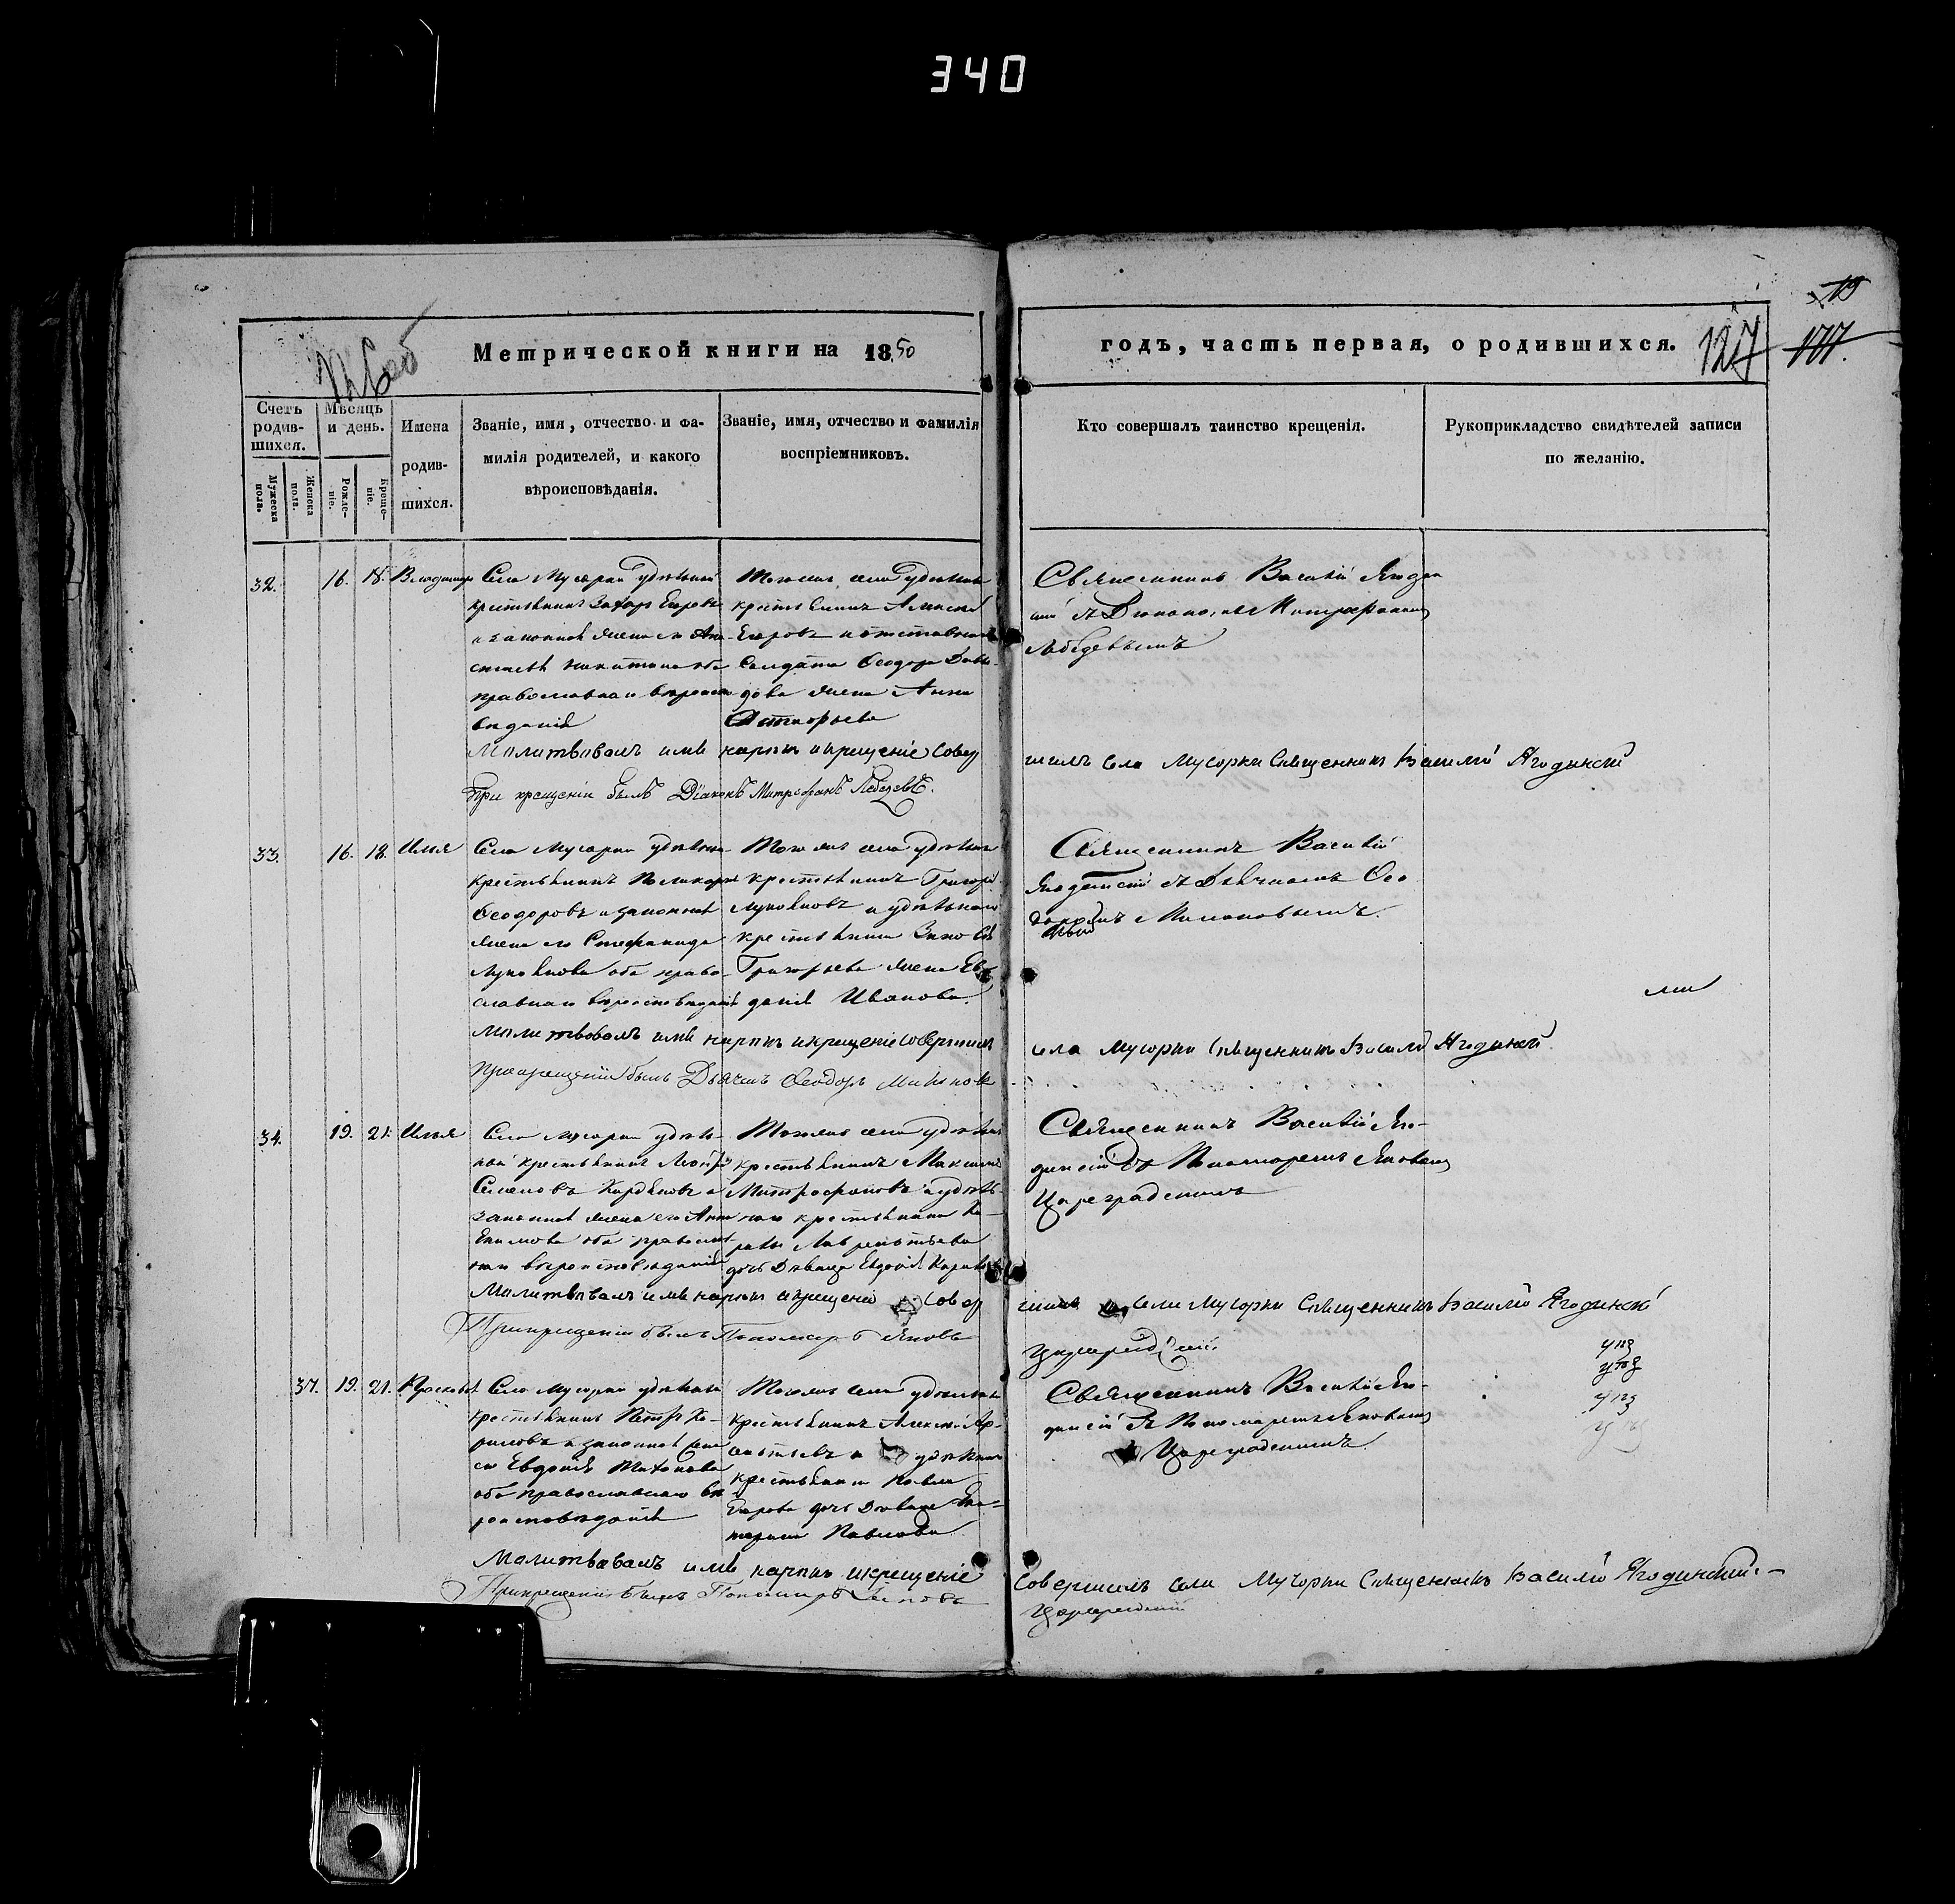 340
Метрической книги на 1850
годъ, часть первая, о родившихся.
127
Счетъ родив-шихся.
Мужеска пола.
Женска пола.
Мѣсяцъ и день.
Рожде-ніе.
Креще-ніе.
Имена
родив-
шихся.
Званіе, имя, отчество и фа-
милія родителей, и какого
вѣроисповѣданія.
Званіе, имя, отчество и фамилія
воспріемниковъ.
Кто совершалъ таинство крещенія.
Рукоприкладство свидѣтелей записи
по желанію.
32. 16. 18. Владимиръ
Села Мусорки удѣльной
крестьянинъ Захаръ Егоровъ
и законная жена его Ана-
православнаго вѣроиспо
вѣданія
Тогоже села удѣльной
крестьянинъ Алексей
Егоровъ и отставнаго
Солдата Ѳеодора Давы-
дова жена Анна
Григорьева
Священникъ Василій Ягодин
скій съ Діакономъ Митрофаномъ
Лебедевымъ
Молитвовалъ имя нарекъ и крещеніе совер
шилъ села Мусорки Священникъ Василій Ягодинскій
При крещеніи былъ Діаконъ Митрофанъ Лебедевъ.
33. 16. 18. Илья
Села Мусорки удѣльной
крестьянинъ Поликарпъ
Ѳеодоровъ и законная
жена его Стефанида
Лукоянова оба право-
славнаго вѣроисповѣданія
Тогоже села удѣльной
крестьянинъ Григорій
Лукояновъ и удѣльнаго
крестьянина Зиновія
Григорьева жена Евг
данія Иванова.
Священникъ Василій
Ягодинскій съ Дьячкомъ Ѳео
Молитвовалъ имя нарекъ и крещеніе совершилъ
села Мусорки Священникъ Василій Ягодинскій
При крещеніи былъ Дьячекъ Ѳеодоръ
34. 19. 21. Илья
Села Мусорки удѣль-
ной крестьянинъ
Семеновъ и
законная жена его Анна
Екимова оба православ
наго вѣроисповѣданія
Тогоже села удѣльной
крестьянинъ Максимъ
Митрофановъ и удѣль-
наго крестьянина
Лаврентьева
дочь Дѣвица Евдокія
Священникъ Василій Яго-
динскій съ Пономаремъ Яковомъ
Цареградскимъ
Молитвовалъ имя нарекъ и крещеніе совер
шилъ села Мусорки Священникъ Василій Ягодинскій
При крещеніи былъ Пономарь Яковъ
Цареградскій.
37. 19. 21.
Села Мусорки удѣльной
крестьянинъ Петръ
и законная жена
его Евдокія Тихонова
оба православнаго вѣ
роисповѣданія
Тогоже села удѣльной
крестьянинъ Алексей
и удѣльнаго
крестьянина Павла
Егорова дочь Дѣвица Ека-
терина Павлова
Священникъ Василій Яго-
динскій съ Пономаремъ Яковомъ
Цареградскимъ
Молитвовалъ имя нарекъ и крещеніе
совершилъ села Мусорки Священникъ Василій Ягодинскій.
При крещеніи былъ Пономарь Яковъ
Цареградскій